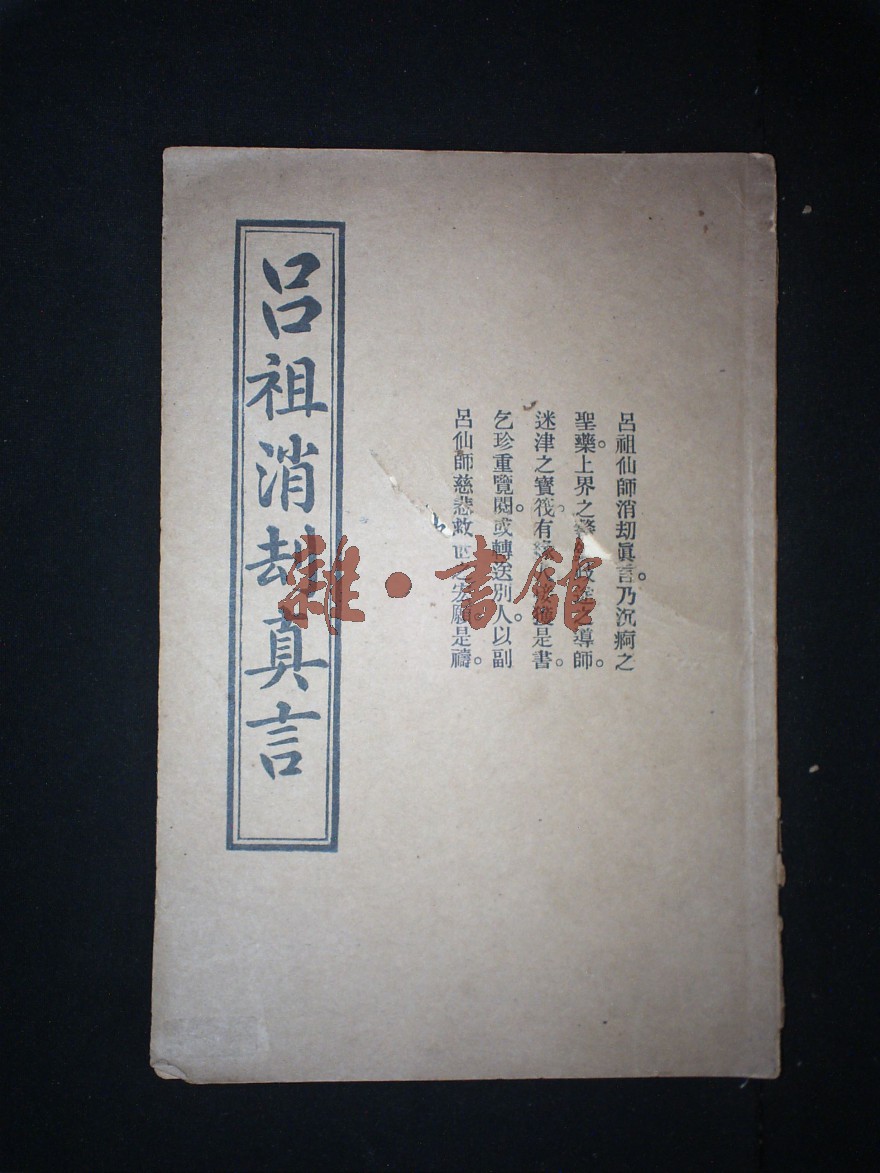 呂祖仙師消劫眞言。乃沉痾之
聖藥。上界之之導師。
迷津之寶筏。有獲是書。
乞珍重覽閱。或轉送別人。以副
呂仙師慈悲救世之宏願。是禱。
呂祖消劫真言
雜·書館